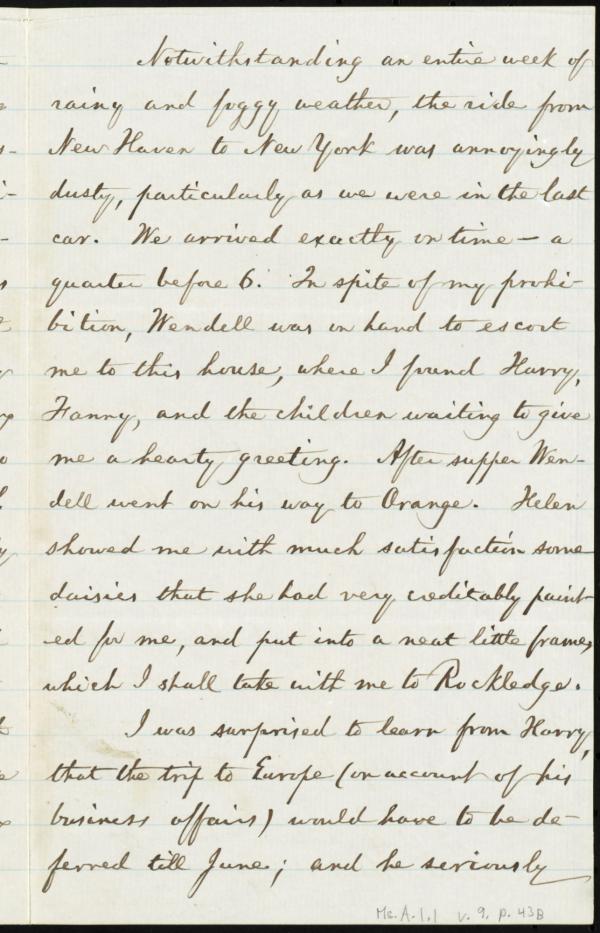 Notwithstanding an entire week of
rainy and foggy weather, the ride from
New Haven to New York was annoyingly
dusty, particularly as we were in the last
car. We arrived exactly on time — a
quarter before 6. In spite of my prohi-
bition, Wendell was on hand to escort
me to this house, where I found Harry,
Fanny, and the children waiting to give
me a hearty greeting. After supper Wen-
dell went on his way to Orange. Helen
showed me with much satisfaction some
daisies that she had very creditably paint-
ed for me, and put into a neat little frame,
which I shall take with me to Rockledge.
I was surprised to learn from Harry,
that the trip to Europe (on account of his
business affairs) would have to be de-
ferred till June; and he seriously
Ms. A. 1. 1 v. 9, p. 43B